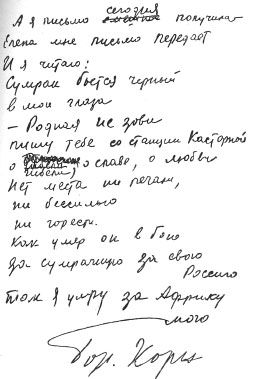 сегодня
А я письмо получила
Елена мне письмо передаёт
И я читаю:
Сумрак бьётся чёрный
в мои глаза
– Родная не зови
пишу тебе со станции Касторной
о гибели, о славе, о любви
Нет места ни печали,
ни бессилью
ни горести.
Как умер он в бою
за сумрачную за свою
Россию
Так я умру за Африку
мою
Бор. Корн